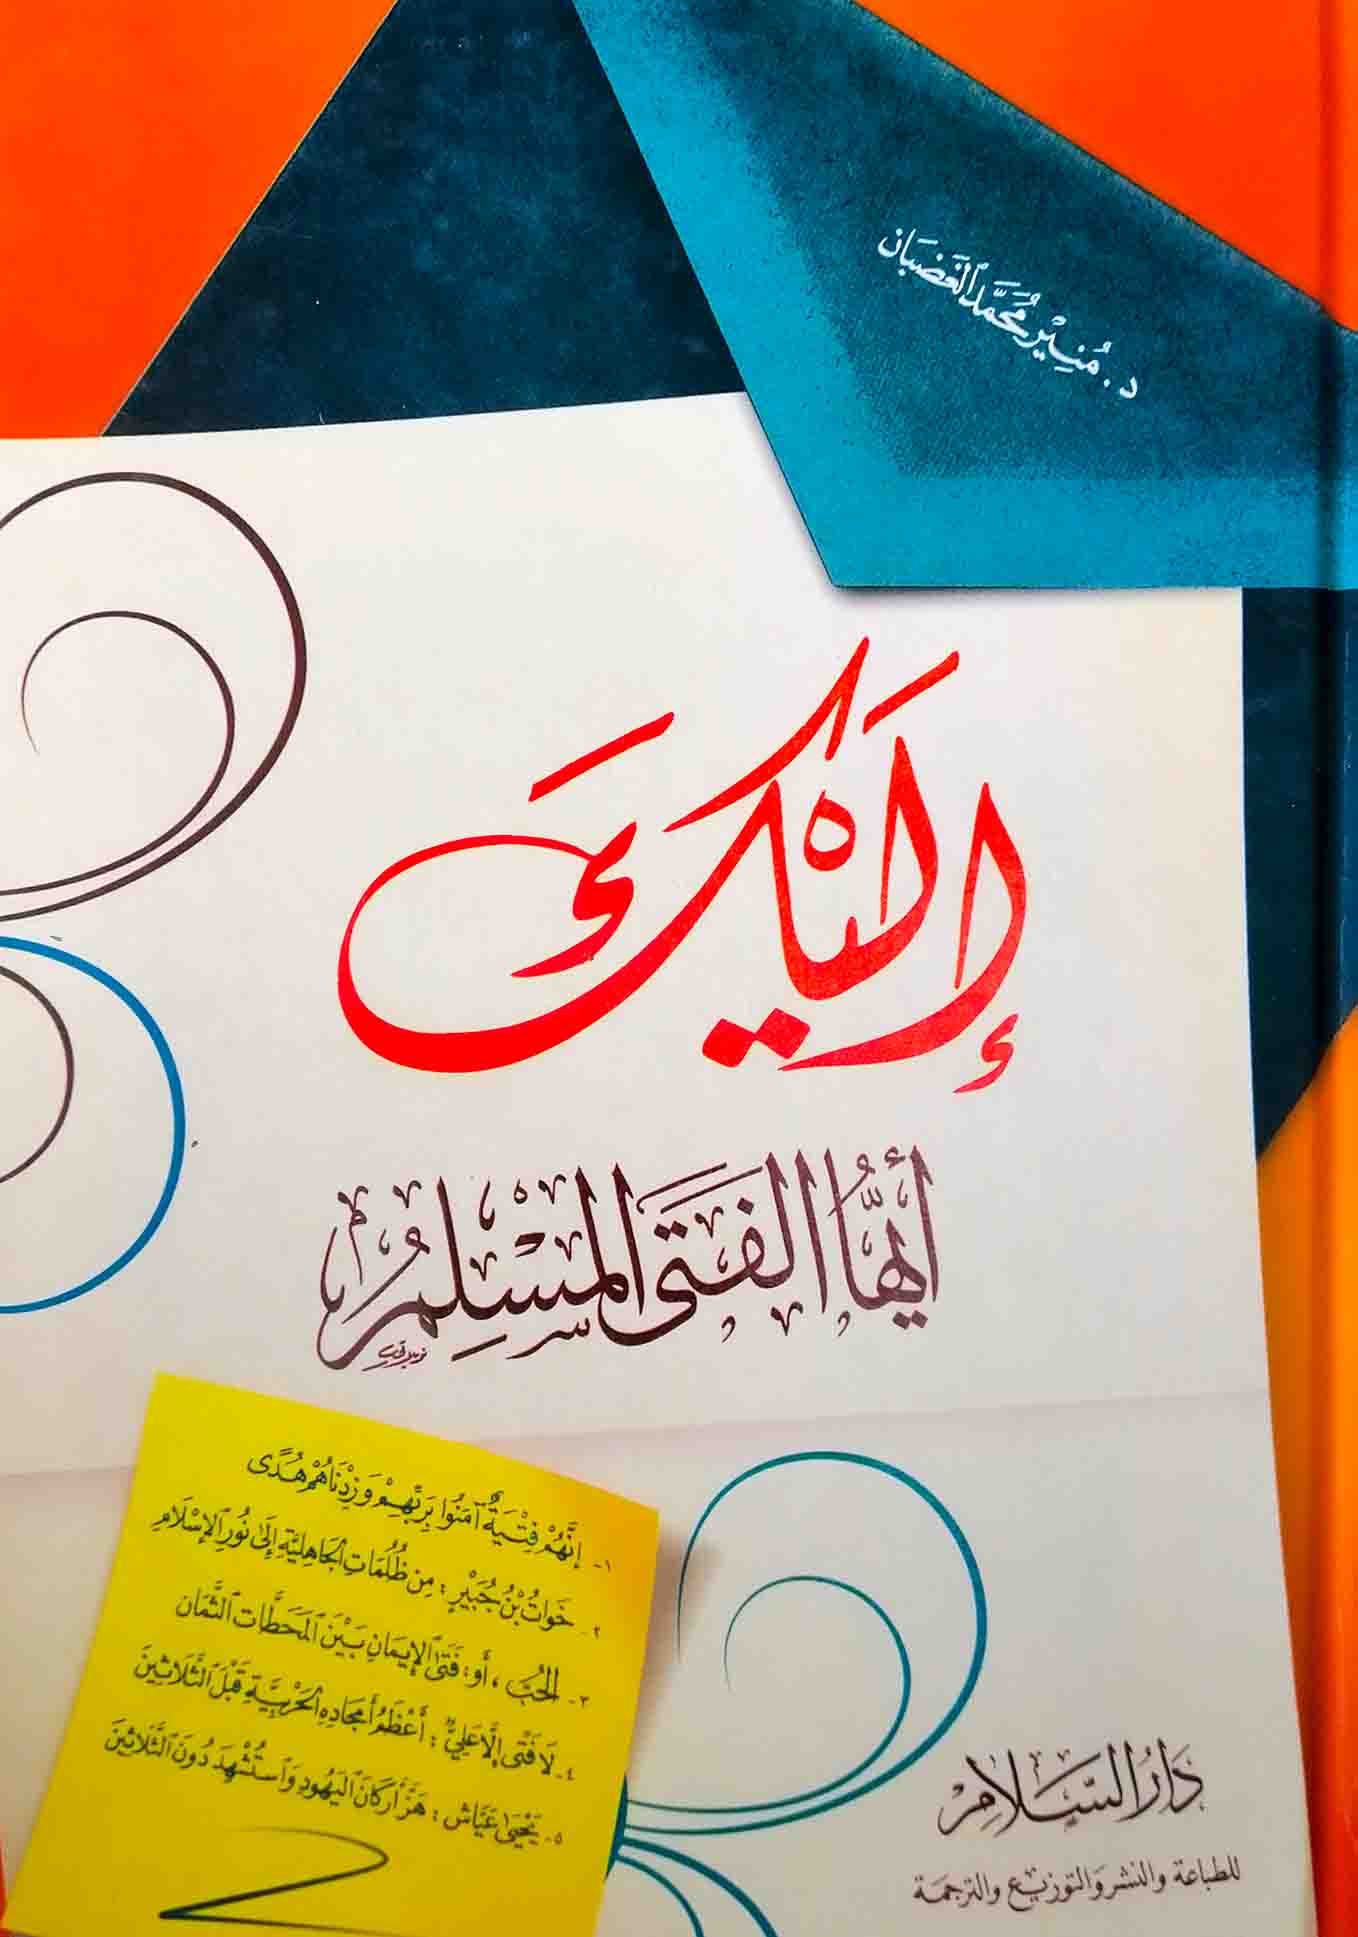 د. مُنِير مُحَمَّد الغَضبَان
إِلَيْكَ
أَيُّهَا الفَتَى المُسْلِمُ
١- إِنَّهُمْ فِتْيَةٌ آمَنُوا بِرَبِّهِمْ وَزِدْنَاهُمْ هُدًى
٢- خَوَاتُ بْنُ جُبَيْرٍ : مِن ظُلُمَاتِ الجَاهِلِيَّةِ إِلَى نُورِ الإِسْلَامِ
٣- الحُبّ ، أَو : فَتَى الإِيمَانِ بَيْنَ المَحَطَّاتِ الثَّمَان
٤- لَا فَتَى إِلَّا عَلِيٌّ : أَعْظَمُ أَمْجَادِهِ الحَرْبِيَّةِ قَبْلَ الثَّلَاثِينَ
٥- يَحْيَى عَيَّاش : هَزَّ أَركَانَ اليَهُودِ وَاستُشْهِدَ دُونَ الثَّلَاثِينَ
دَارُ السَّلَامِ
للطباعة والنشر والتوزيع والترجمة